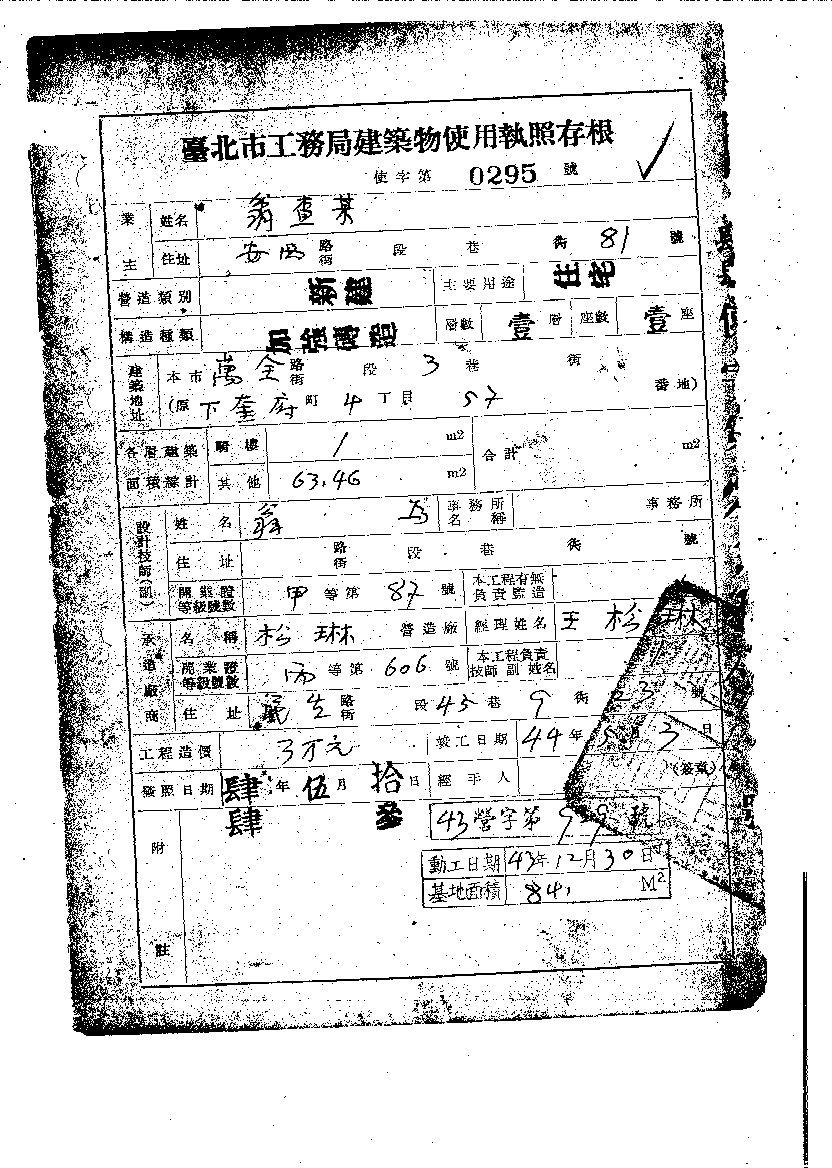 臺北市工務局建築物使用執照存根
使字第 0295 號
業主 姓名 翁查某
住址 安西 路街 段 巷 衖 81 號
營造類別 新建 主要用途 住宅
構造種類 加強磚造 層數 壹 層 座數 壹 座
建築地址 本市 萬全 路街 段 3 巷 衖
(原 下奎府 町 4 丁目 57 番地)
各層建築面積總計 騎樓 / m2 合計 m2
其他 63.46 m2
設計技師(副) 姓名 翁 事務所名稱 事務所
住址 路街 段 巷 衖 號
開業證等級號數 甲 等第 87 號 本工程有無負責監造
承造廠商 名稱 松琳 營造廠 經理姓名 王松琳
開業證等級號數 丙 等第 606 號 本工程負責技師副姓名
住址 路街 段 45 巷 9 衖 23 號
工程造價 3万元 竣工日期 44年 5月 3日
發照日期 肆肆 年 伍 月 拾叁 日 經手人 (簽章)
43營字第 號
動工日期 43年12月30日
基地面積 841 M2
附註